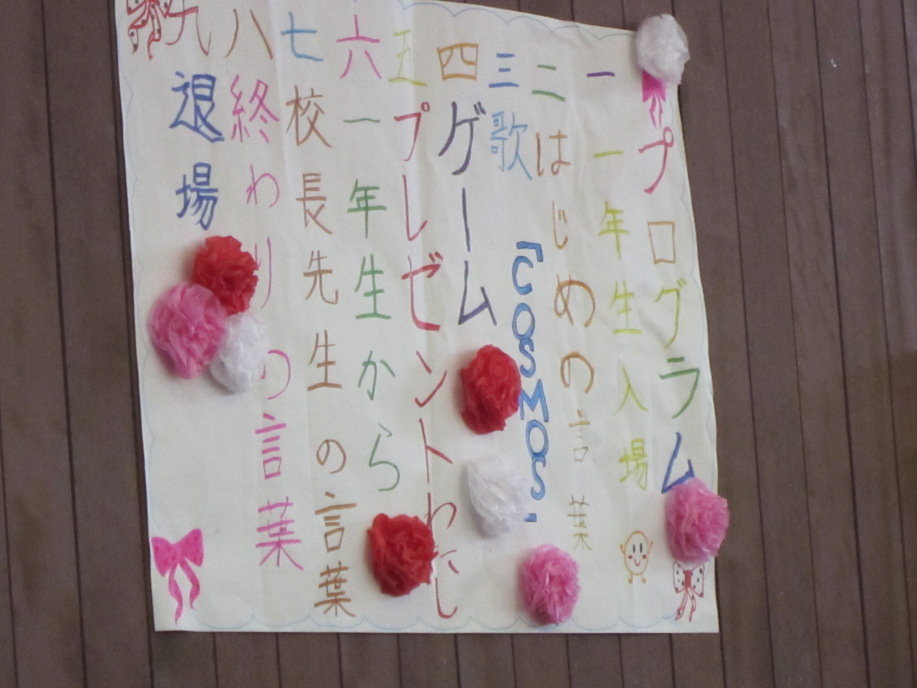 プログラム
一 一年生入場
二 はじめの言葉
三 歌 「COSMOS」
四 ゲーム
五 プレゼントわたし
六 一年生から
七 校長先生の言葉
八 終わりの言葉
九 退場